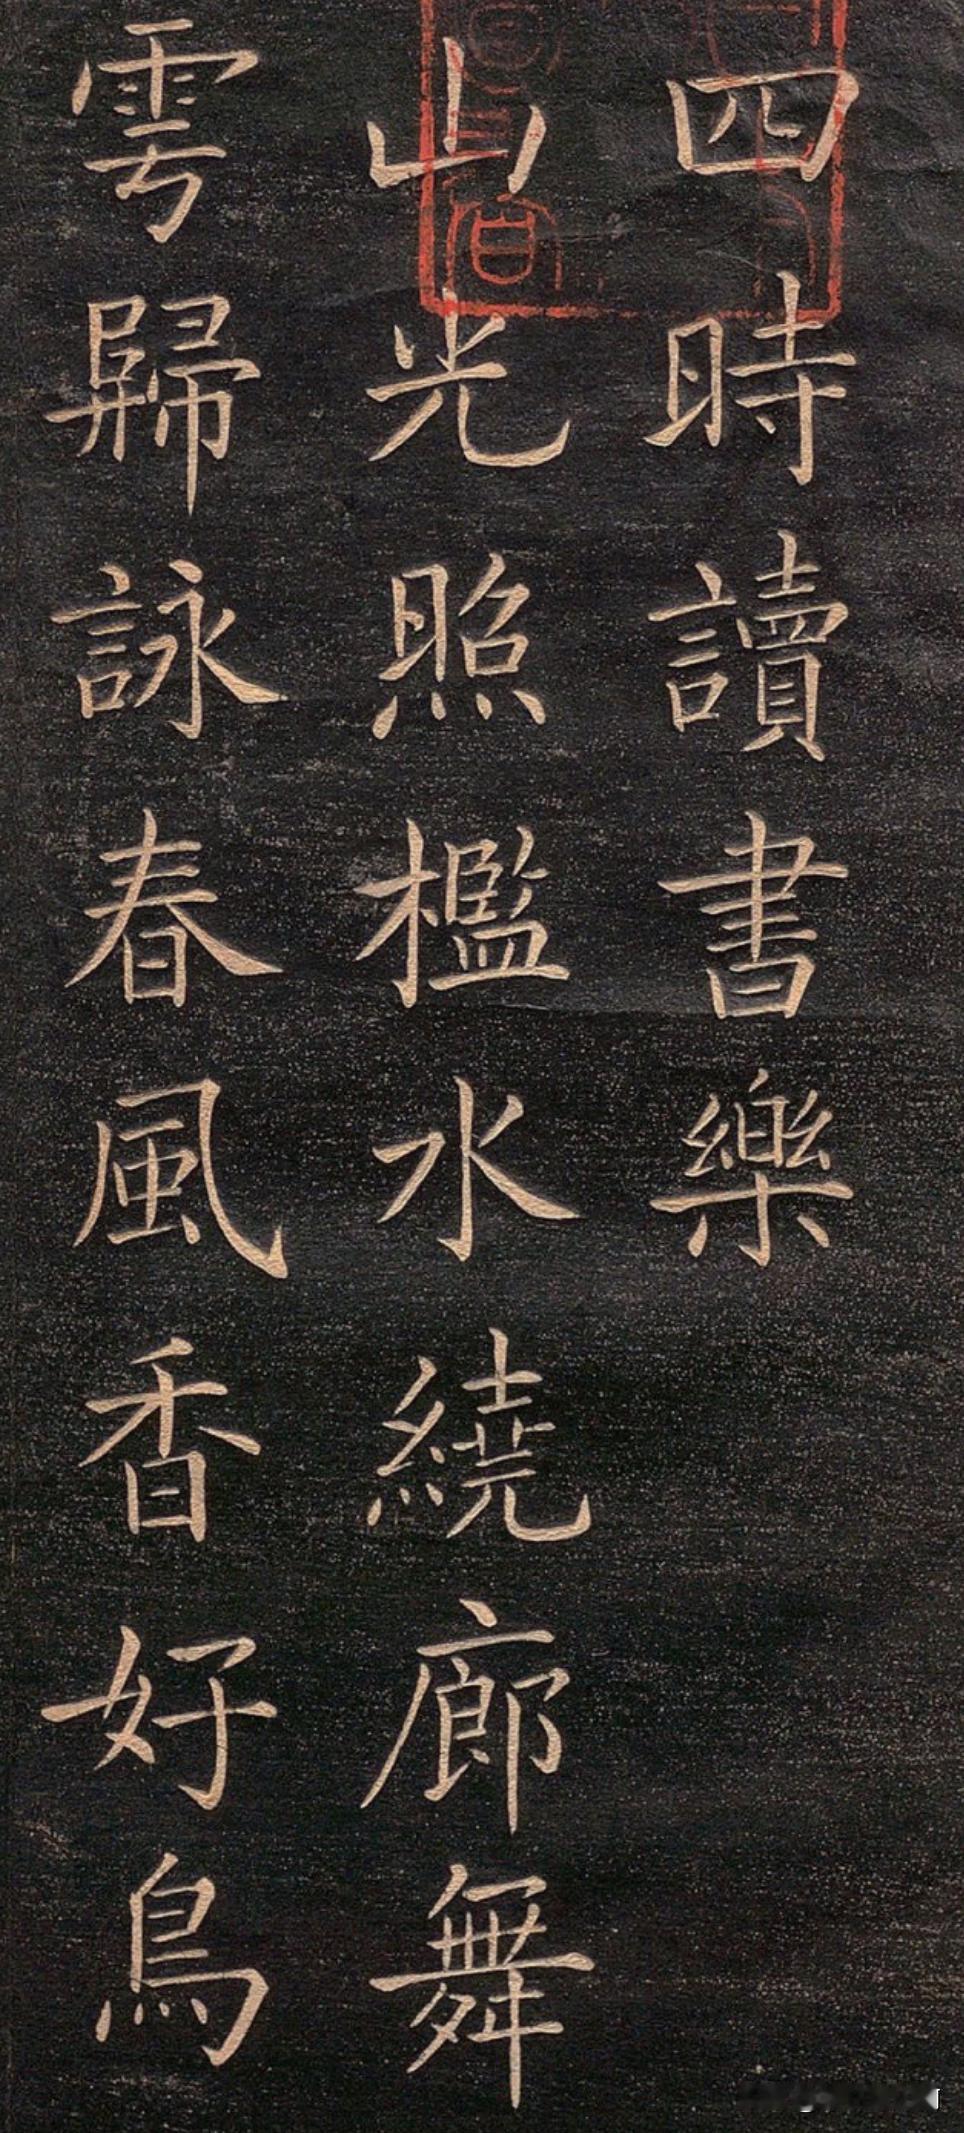 四時讀書樂
山光照檻水繞廊舞
雩歸詠春風香好鳥